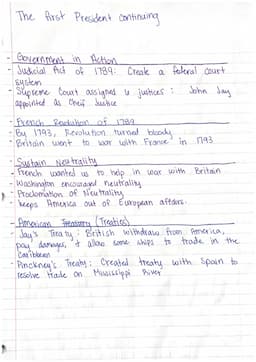 The First President continuing
- Government in Action
- Judicial Act of 1789: Create a federal court
system
- Supreme Court assigned 6 justices : John Jay
appointed as Cheif Justice
- French Revolution of 1789
- By 1793, Revolution turned bloody
- Britain went to war with France in 1793
- Sustain Neutrality
- French wanted us to help in war with Britain
- Washington encouraged neutrality
- Proclamation of Neutrality
- keeps America out of European affairs.
- American (Treaties)
- Jay's Treaty : British withdraw from America,
pay damages, + allow some ships to trade in the
Caribbean
- Pinckney's Treaty: Created treaty with Spain to
resolve trade on Mississippi River